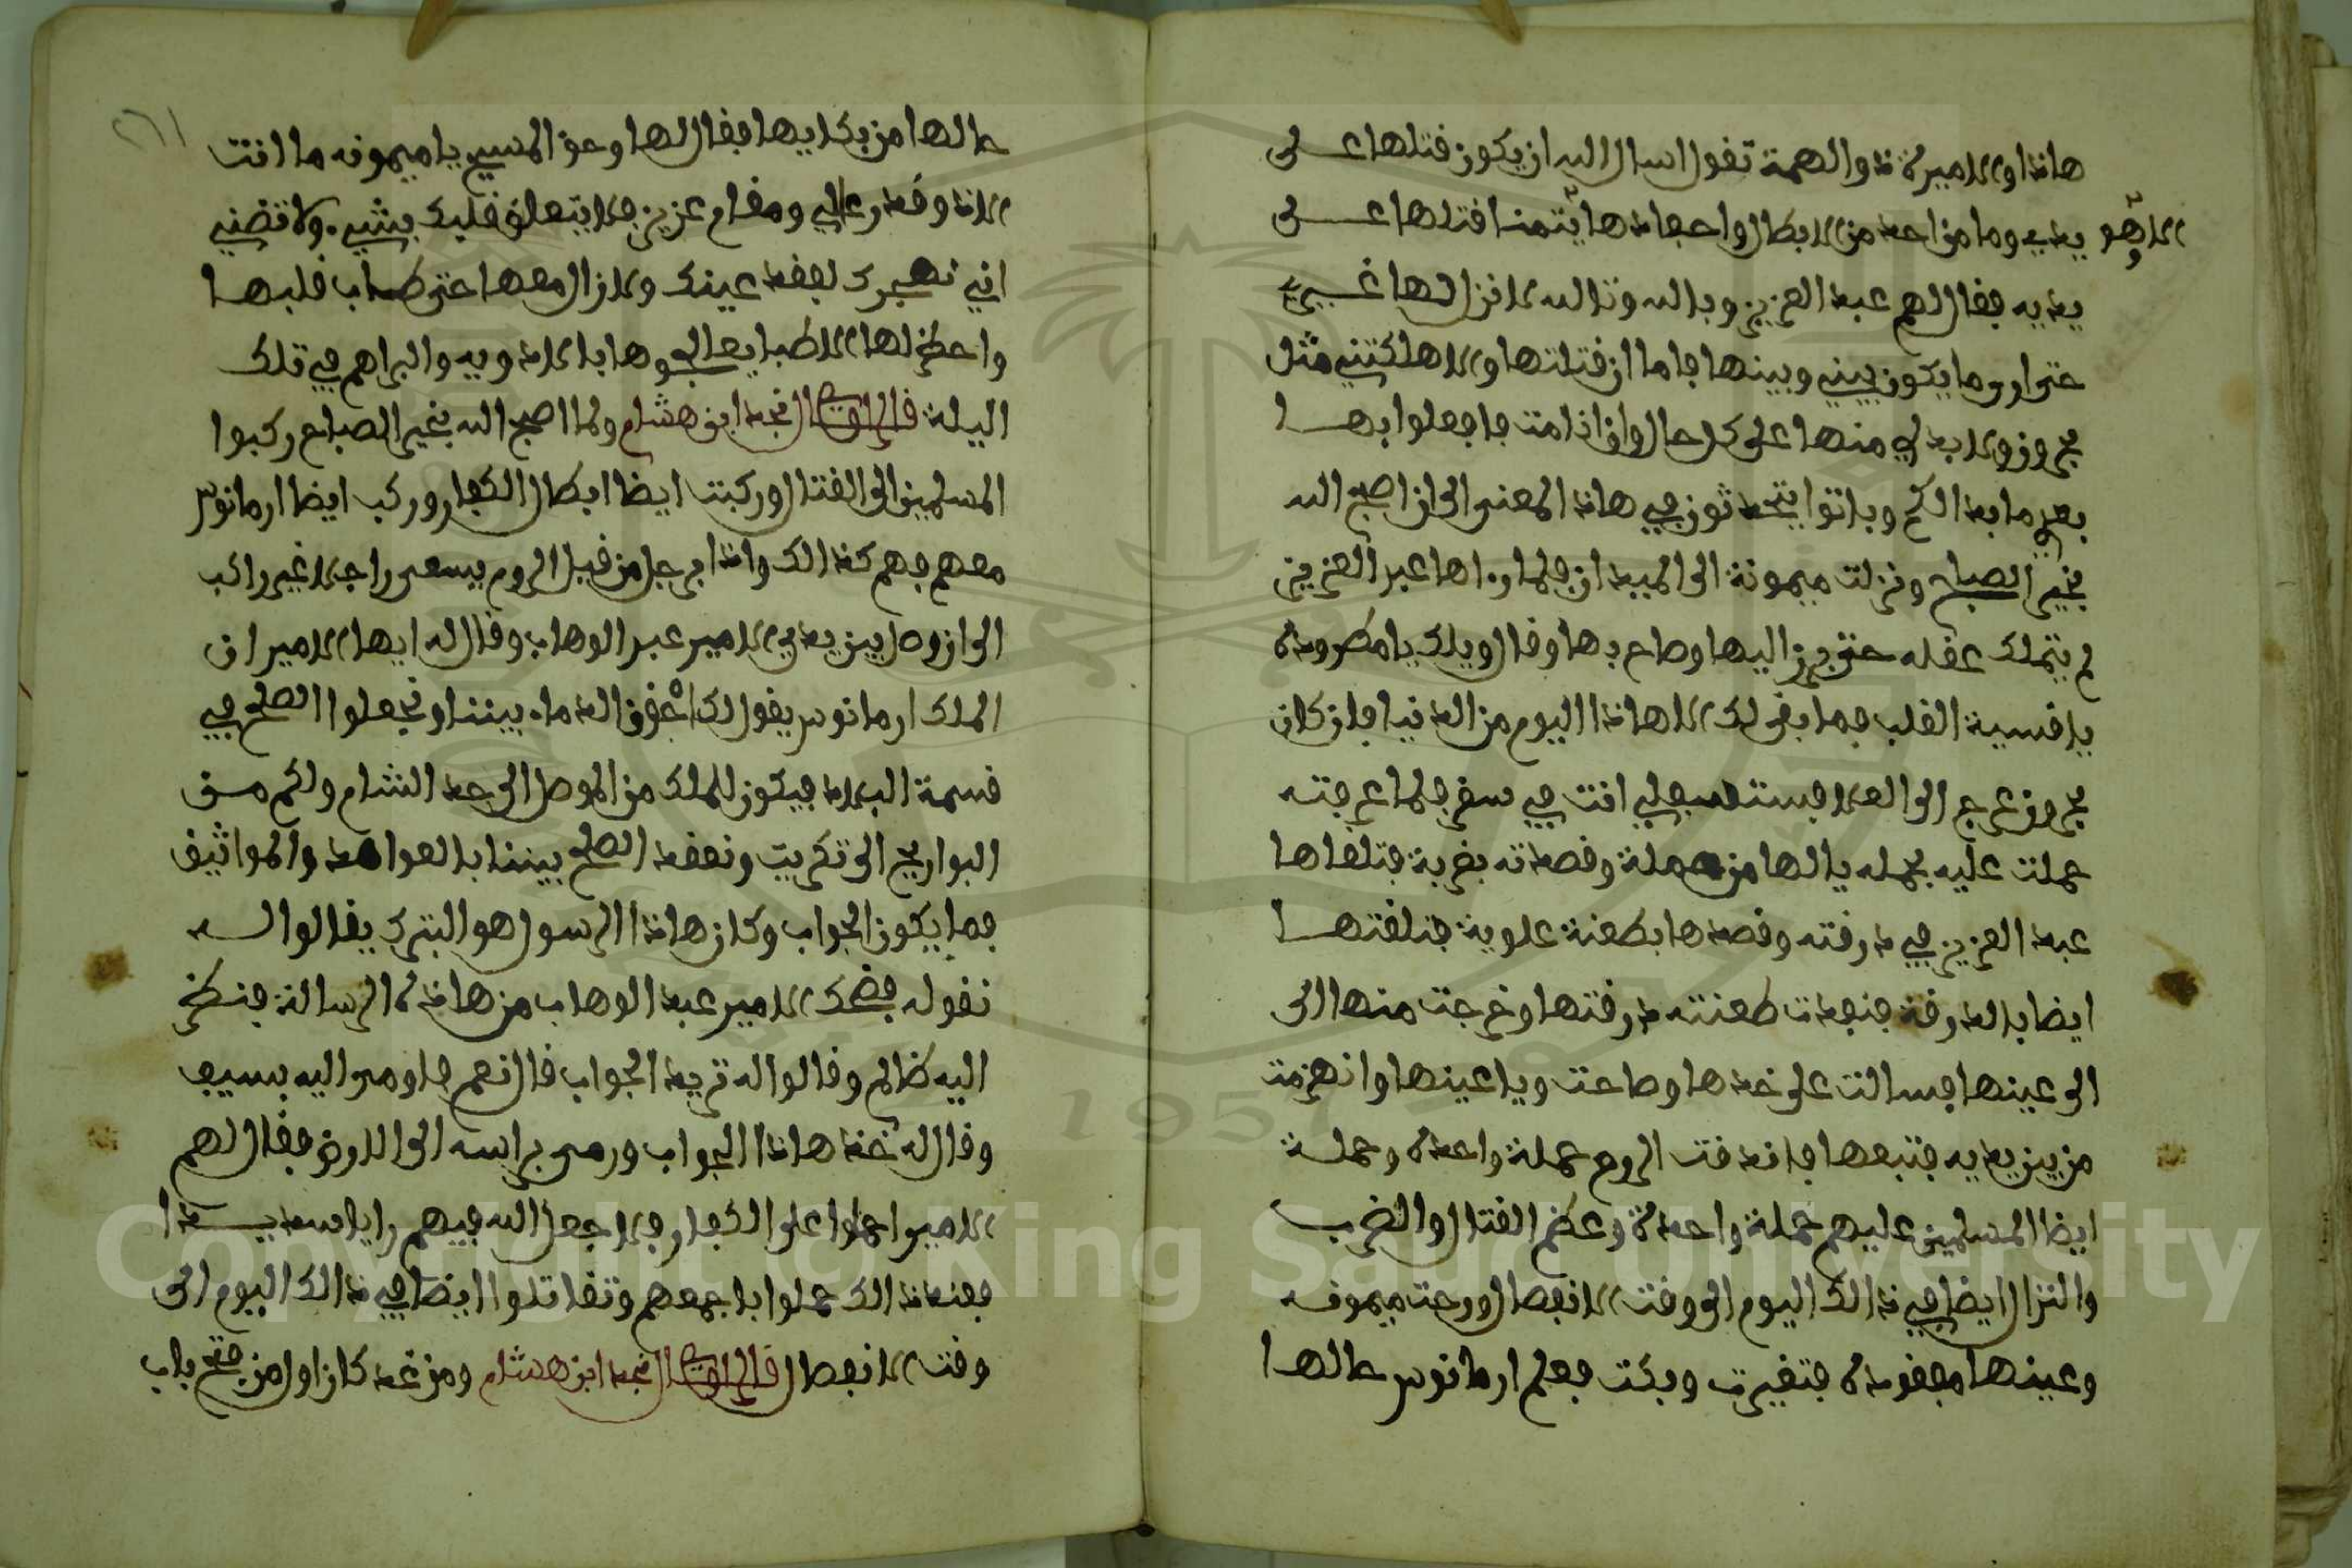 هاذا والاميرة ذوالهمة تقول اسال الله ان يكون قتلها علـى
الا وهو يديه وما من احد من الابطال واحفادها يتمنا قتلها علـى
يديه فقال لهم عبد العزيز وبالله وتالله لا نزال لها غيـري
حتى ارى ما يكون بيني وبينها فاما ان قتلتها والا هلكتني مثل
بحرون ولا بد لي منها على كل حال وان انا مت فاجعلوا بهـا
بعدي ما بدا لكم وباتوا يتحدثون في هاذا المعنى الى ان اصبح الله
بخير الصباح ونزلت ميمونة الى الميدان فلما راها عبد العزيز
لم يتملك عقله حتى برز اليها وصاح بها وقال ويلك يا مطرودة
يا قسية القلب فما بقى لك الا هاذا اليوم من الدنيا فان كان
بحرون عرج الى العلا فستسبقلي انت في سفر فلما عرفته
حملت عليه بحمله يا لها من حملة وقصدته بضربة فتلقاها
عبد العزيز في درقته وقصدها بطعنة علوية فتلقتهـا
ايضا بالدرقة فنفدت طعنته درقتها وخرجت منها الى
الى عينها فسالت على خدها وصاحت ويا عينها وانهزمت
من بين يديه فتبعها فاندفت الروم حملة واحدة وحملة
ايضا المسلمين عليهم حملة واحدة وعظم القتال والضرب
والنزال ايضا في ذالك اليوم الى وقت الانفصال ورجت ميمونه
وعينها مفقودة فتغيرت وبكت فعلم ارمانوس حالهـا
حالها من بكايها فقال لها وحق المسيح يا ميمونه ما انت
الا ذا وقدر عالي ومقام عزيز فلا يتعلق قلبك بشيي. ولا تضني
اني نهجرك لفقد عينك ولا زال معها حتى طاب قلبهـا
واحظر لها الاطبا يعالجوها بالادويه والبراهم في تلك
اليلة قال الراوي نجد ابن هشام ولما اصبح الله بخير الصباح ركبوا
المسلمين الى القتال وركبت ايضا ابطال الكفار وركب ايضا ارمانوس
معهم فهم كذالك واذا برجل من قبل الروم يسعى راجلا غير راكب
الى ان وصل بين يدي الامير عبد الوهاب وقال له ايها الامير ان
الملك ارمانوس يقول لك احقن الدماء بيننا ونجعلوا الصلح في
قسمة البلاد فيكون للملك من الموصل الى حد الشام ولكم مـن
البواريج الى تكريت ونعقد الصلح بيننا بالعواهد والمواثيق
فما يكون الجواب وكان هاذا الرسول هو البترك يقالوا لـه
نقوله فضحك الامير عبد الوهاب من هاذه الرسالة فنظر
اليه ظالم وقالوا له تريد الجواب قال نعم فاومى اليه بسيف
وقال له خذ هاذا الجواب ورمى براسه الى الارض فقال لهم
الامير احملوا على الكفار فلا جعل الله فيهم رايا سديـدا
فعند ذالك حملوا باجمعهم وتقاتلوا ايضا في ذالك اليوم الى
وقت الانفصال قال الراوي نجد ابن هشام ومن غد كان اول من فتح باب